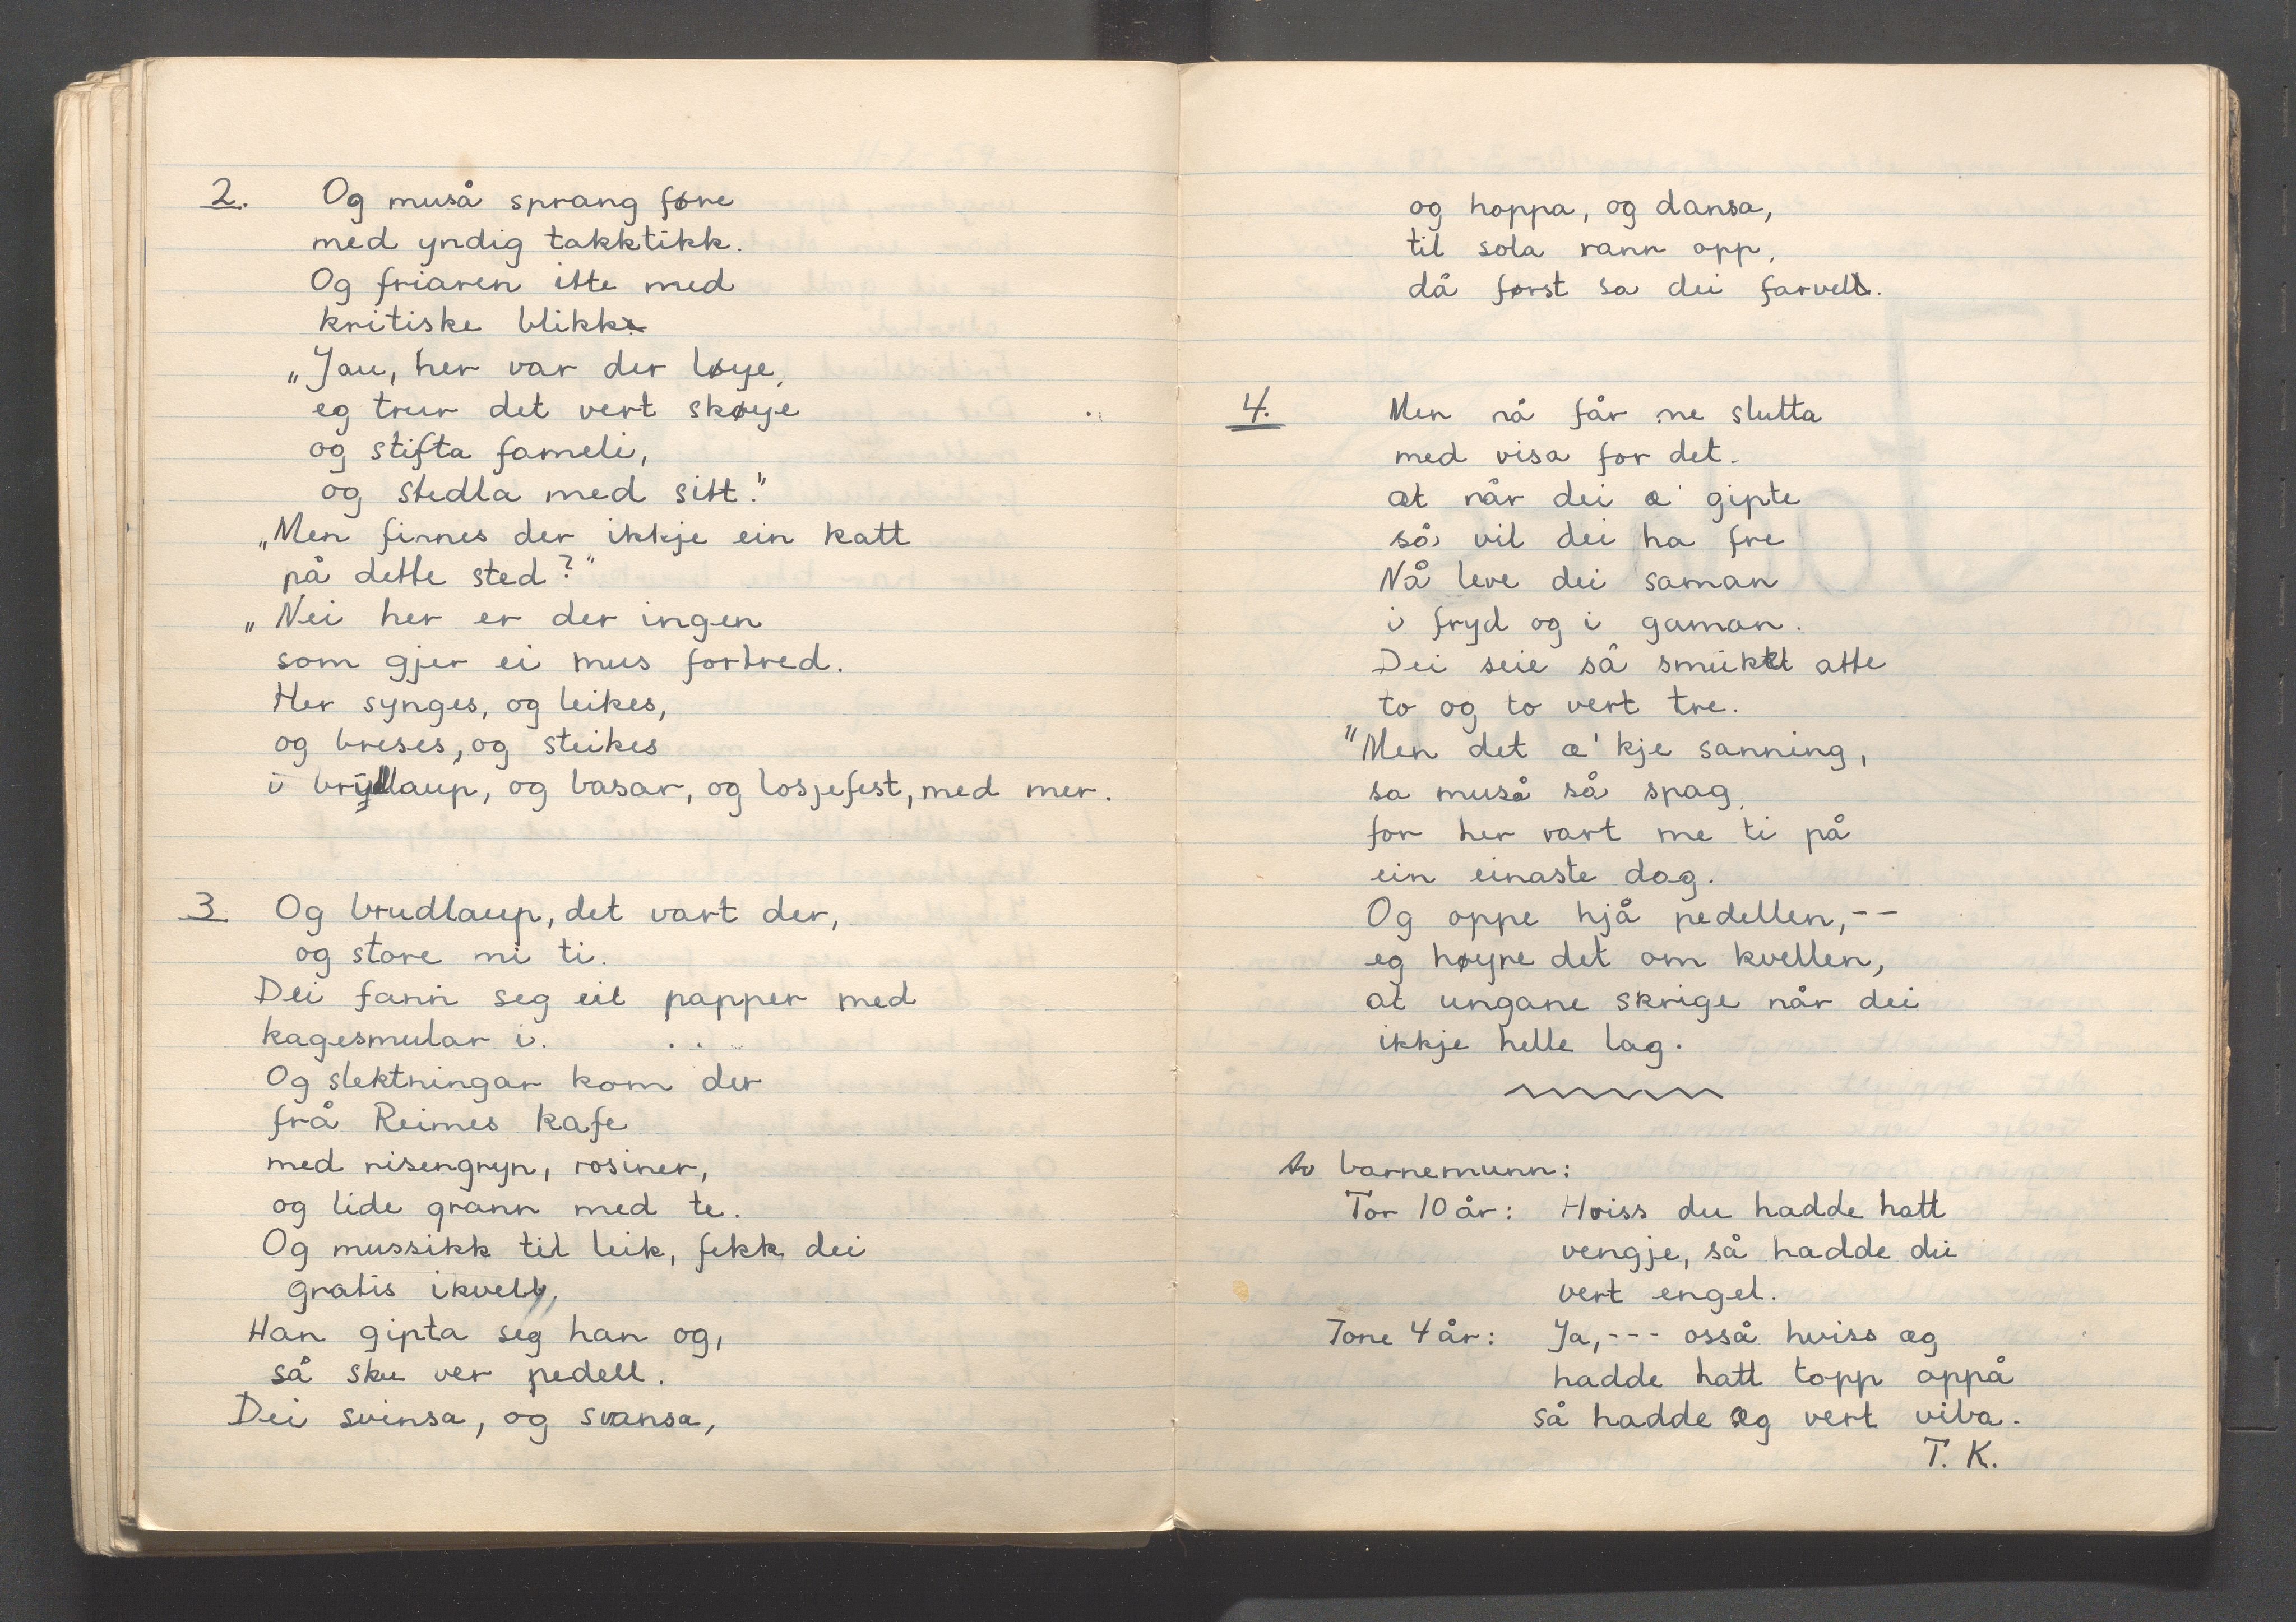 2. Og muså sprang føre
med yndig takktikk.
Og friaren itte med
kritiske blikk.
„Jau, her var der løye,
eg trur det vert skøye
og stifta fameli,
og stedla med sitt."
„Men finnes der ikkje ein katt
på dette sted?"
„Nei her er der ingen
som gjer ei mus fortred.
Her synges, og leikes,
og breses, og steikes
i bryllaup, og basar, og losjefest, med mer.
3 Og brudlaup, det vart der,
og store mi ti.
Dei fann seg eit papper med
kagesmular i.
Og slektningar kom der
frå Reimes kafe
med risengryn, rosiner,
og lide grann med te.
Og mussikk til leik, fekk dei
gratis ikvell,
Han gipta seg han og,
så sku ver pedell.
Dei svinsa, og svansa,
og hoppa, og dansa,
til sola rann opp,
då først sa dei farvell.
4. Men nå får me slutta
med visa for det.
at når dei æ' gipte
så vil dei ha fre
Nå leve dei saman
i fryd og i gaman.
Dei seie så smukt atte
to og to vert tre.
"Men det æ' kje sanning,
sa muså så spag,
for her vart me ti på
ein einaste dag.
Og oppe hjå pedellen,--
eg høyre det om kvellen,
at ungane skrige når dei
ikkje helle lag.
Av barnemunn:
Tor 10 år: Hviss du hadde hatt
vengje, så hadde du
vert engel.
Tone 4 år: Ja,--- osså hviss eg
hadde hatt topp oppå
så hadde eg vert viba.
T. K.